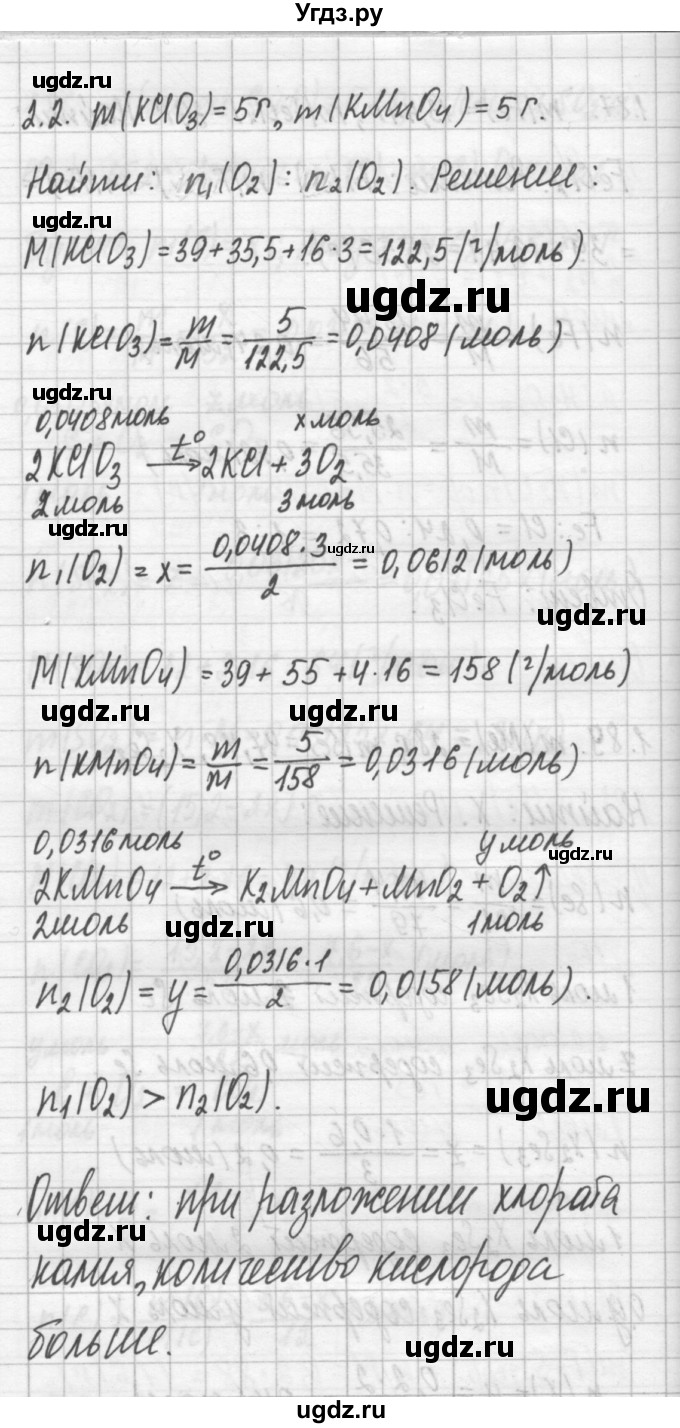 Угдз.ру
ugdz.ru
2.2. m(KClO3)=5г, m(KMnO4)=5г.
Найти: n1(O2):n2(O2). Решение:
ugdz.ru
M(KClO3)=39+35,5+16·3=122,5(г/моль)
ugdz.ru
n(KClO3)=m/M=5/122,5=0,0408(моль)
ugdz.ru
0,0408моль x моль
2KClO3 t°→ 2KCl+3O2
2моль 3моль
ugdz.ru
ugdz.ru
n1(O2)=x=0,0408·3/2=0,0612(моль)
ugdz.ru
M(KMnO4)=39+55+4·16=158(г/моль)
ugdz.ru ugdz.ru
n(KMnO4)=m/M=5/158=0,0316(моль)
0,0316моль y моль
ugdz.ru
2KMnO4 t°→ K2MnO4+MnO2+O2↑
2моль 1моль
ugdz.ru
n2(O2)=y=0,0316·1/2=0,0158(моль).
n1(O2)>n2(O2).
ugdz.ru
Ответ: при разложении хлората
ugdz.ru
калия, количество кислорода
больше.
ugdz.ru
ugdz.ru